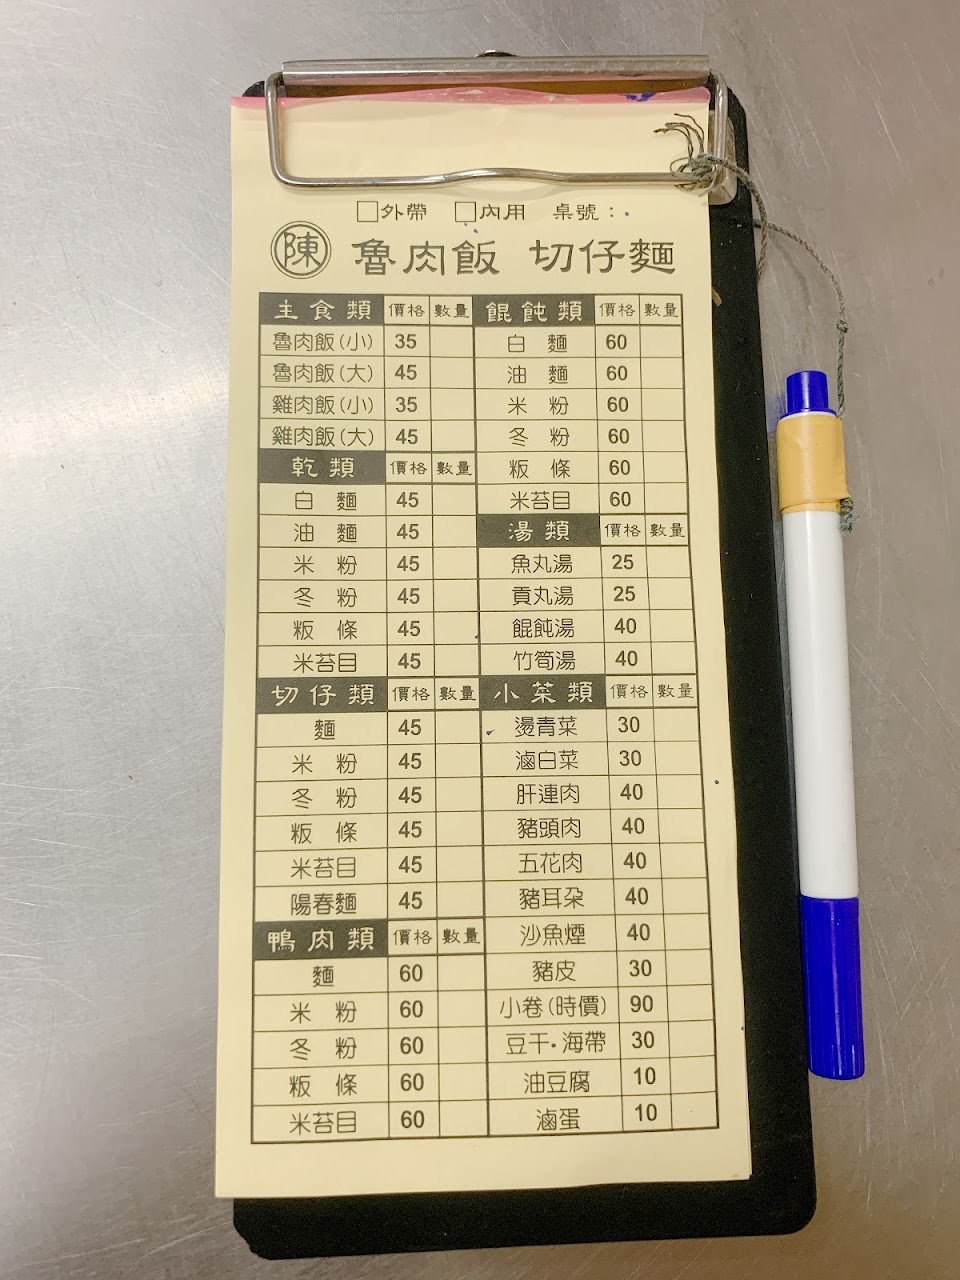 □外帶 □內用 桌號：
陳 魯肉飯 切仔麵
主食類 價格 數量
魯肉飯(小) 35
魯肉飯(大) 45
雞肉飯(小) 35
雞肉飯(大) 45
乾類 價格 數量
白麵 45
油麵 45
米粉 45
冬粉 45
粄條 45
米苔目 45
切仔類 價格 數量
麵 45
米粉 45
冬粉 45
粄條 45
米苔目 45
陽春麵 45
鴨肉類 價格 數量
麵 60
米粉 60
冬粉 60
粄條 60
米苔目 60
餛飩類 價格 數量
白麵 60
油麵 60
米粉 60
冬粉 60
粄條 60
米苔目 60
湯類 價格 數量
魚丸湯 25
貢丸湯 25
餛飩湯 40
竹筍湯 40
小菜類 價格 數量
燙青菜 30
滷白菜 30
肝連肉 40
豬頭肉 40
五花肉 40
豬耳朵 40
沙魚煙 40
豬皮 30
小卷(時價) 90
豆干·海帶 30
油豆腐 10
滷蛋 10